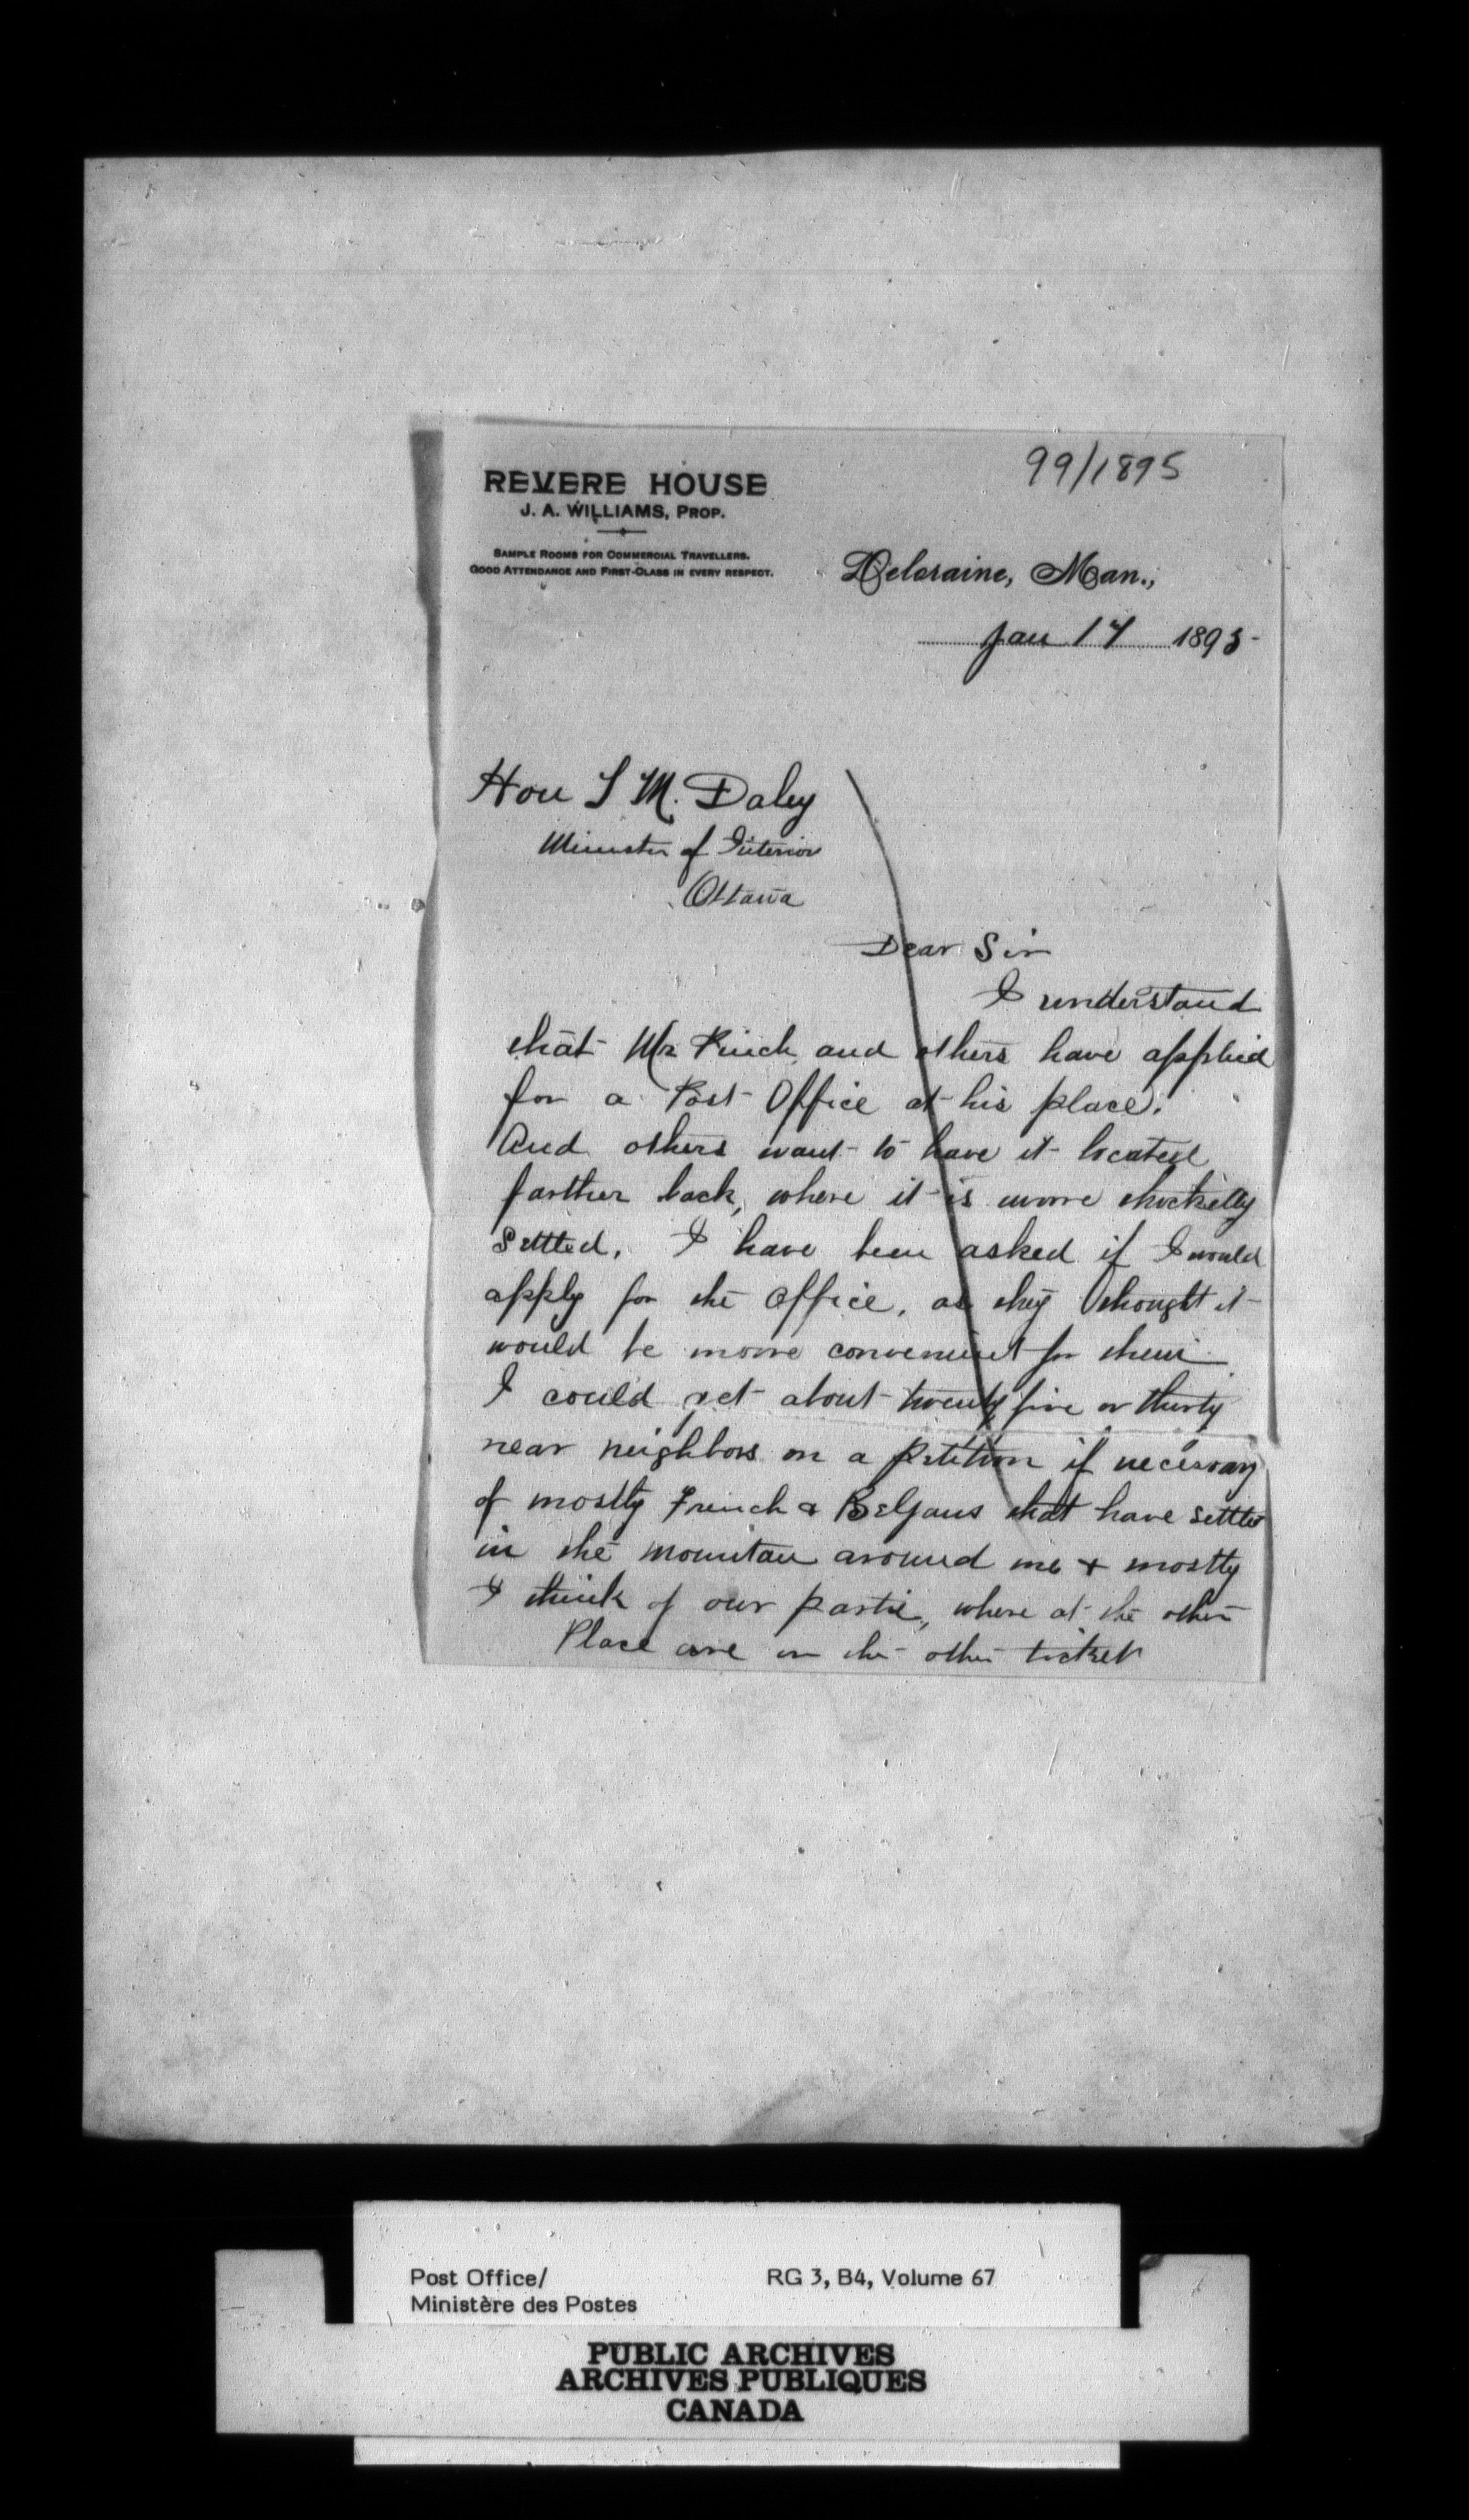 99/1895
REVERE HOUSE
J. A. WILLIAMS, PROP.
SAMPLE ROOMS FOR COMMERCIAL TRAVELLERS.
GOOD ATTENDANCE AND FIRST-CLASS IN EVERY RESPECT.
Deloraine, Man.,
Jan 17 1895
Hon T M. Daley
Minister of Interior
Ottawa
Dear Sir
I understand
that Mr and others have applied
for a Post Office at his place.
And others want to have it located
farther back, where it is more thickelly
Settled. I have been asked if I would
apply for the Office, as they thought it
would be more convenient for them
I could get about twenty five or thirty
near neighbors on a petition if necessary
of mostly French & Belgans that have settled
in the mountan around me + mostly
I think of our partie, where at the other
Place are on the other ticket
Post Office/
Ministère des Postes
RG 3, B4, Volume 67
PUBLIC ARCHIVES
ARCHIVES PUBLIQUES
CANADA